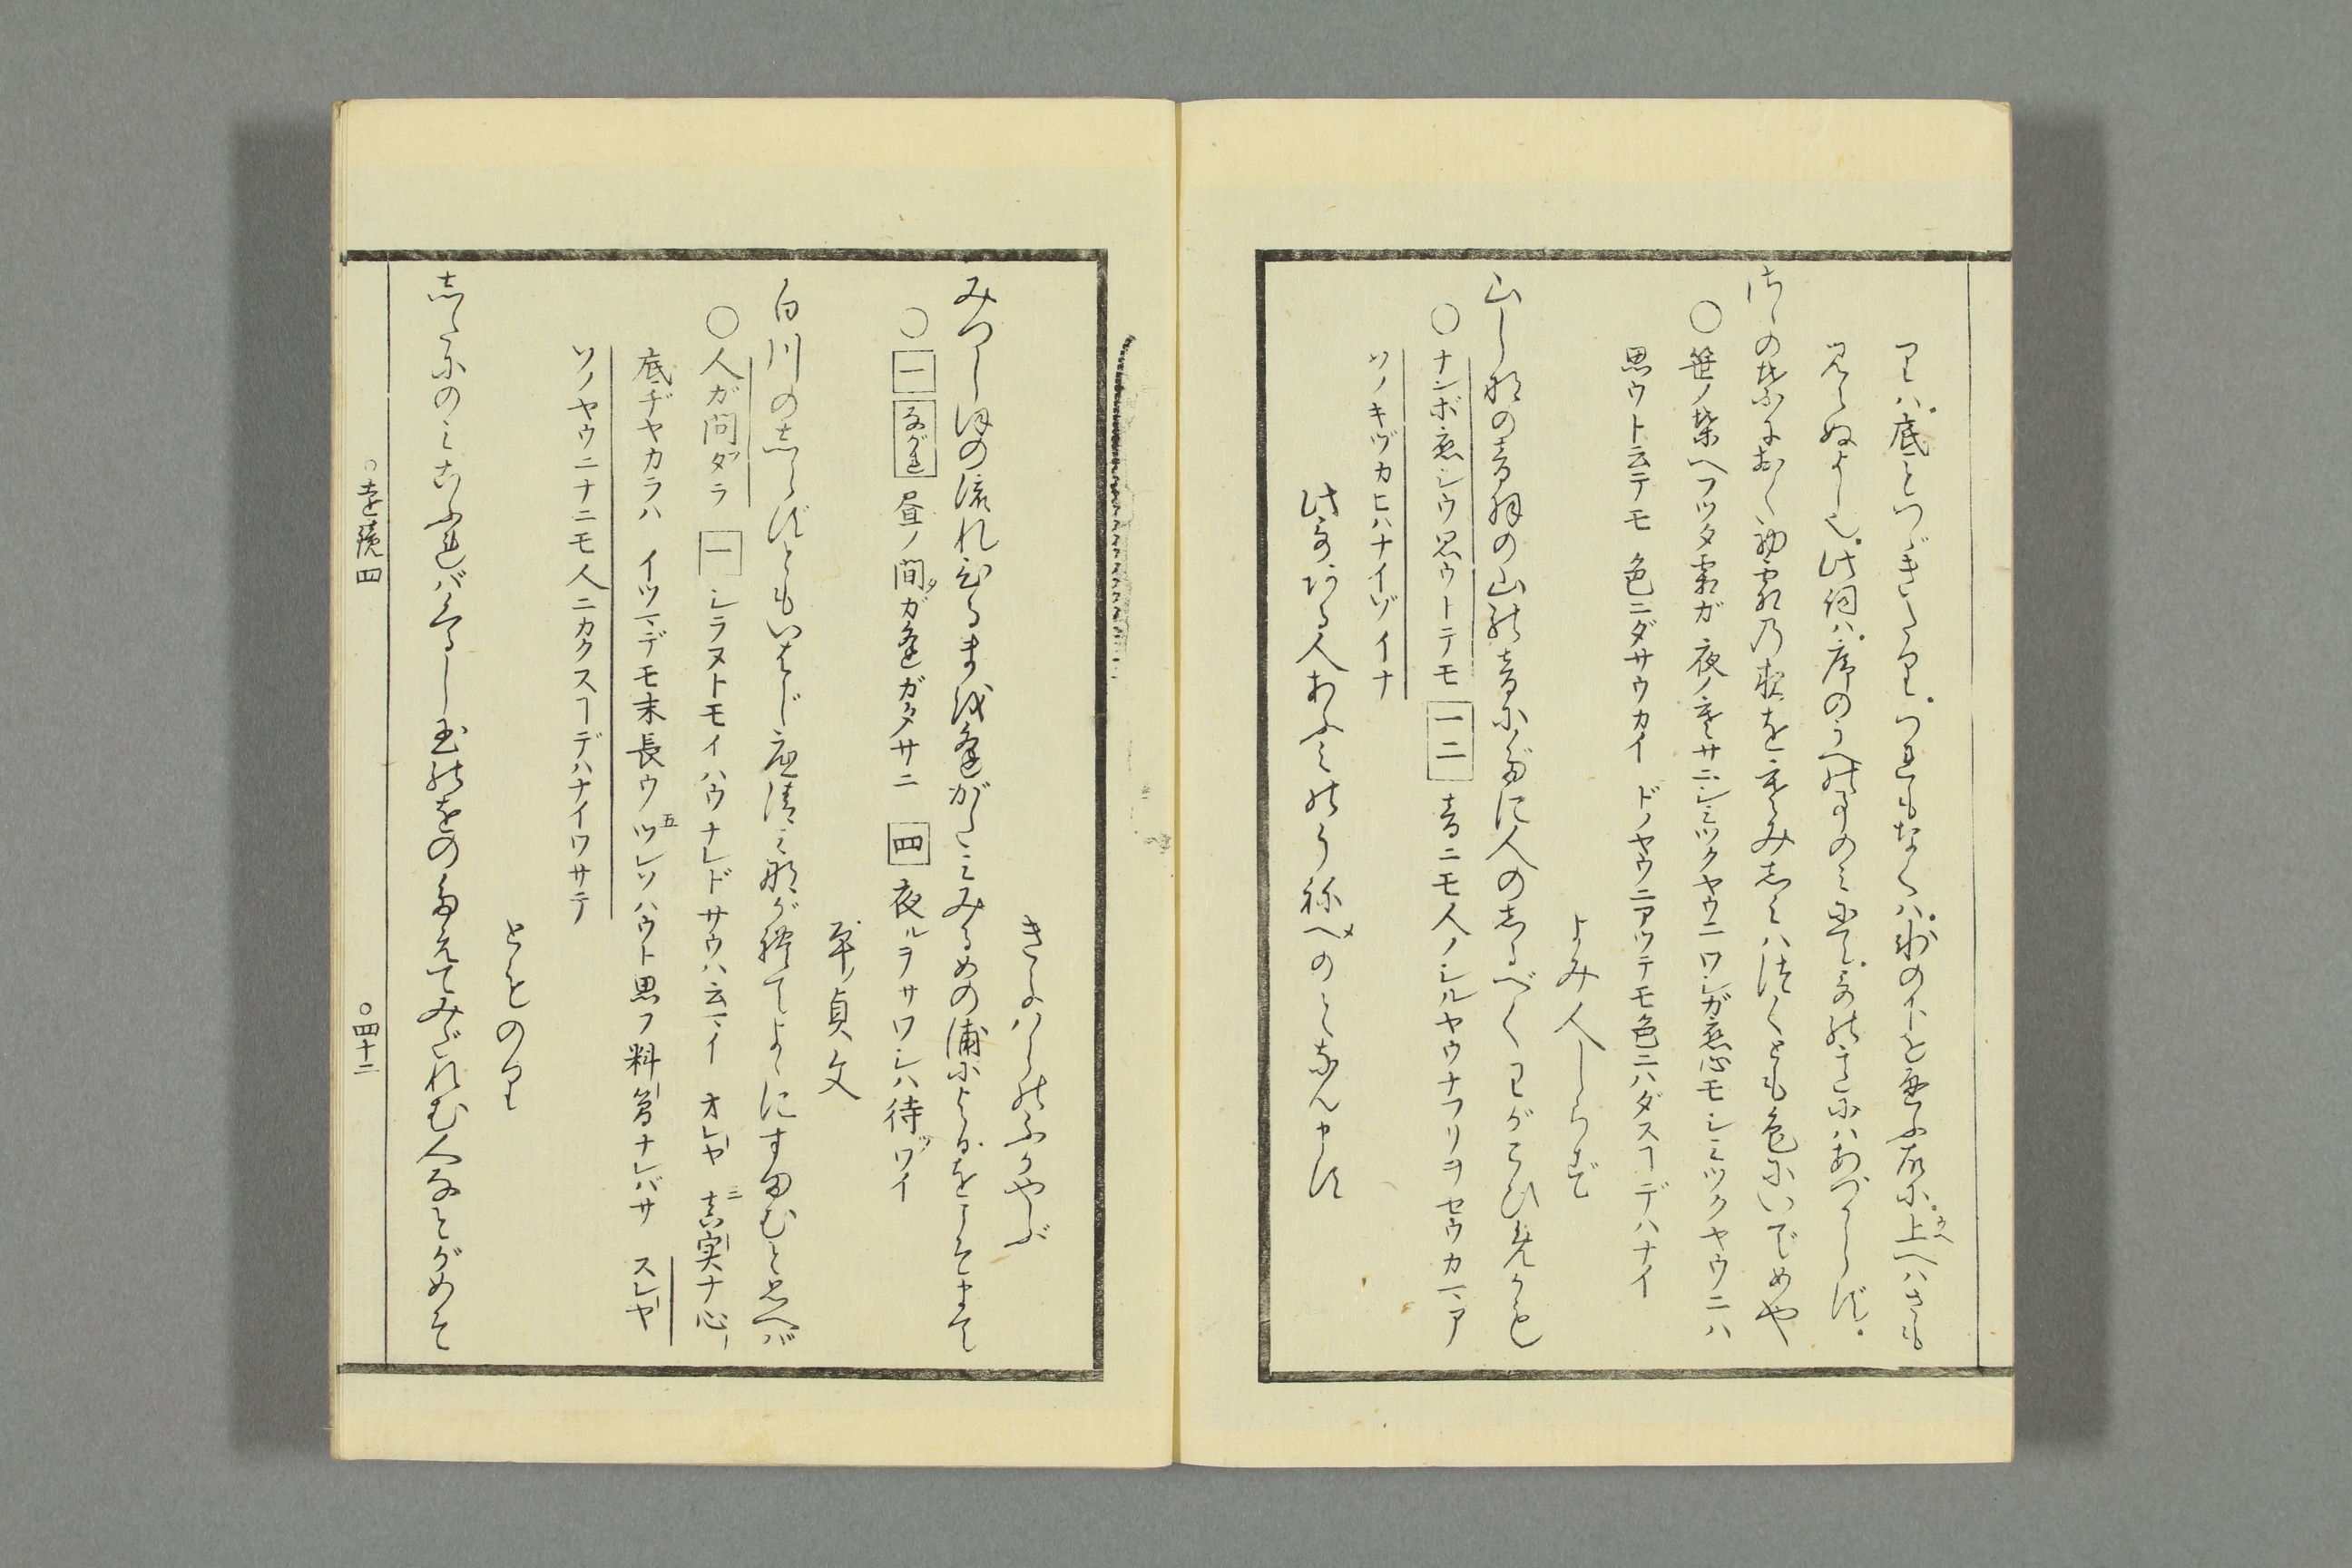 りハ.底とつゞきたり.つれもなくハ.水の下を通ふ故に.上ウヘへハさも
見えぬよし也.此詞ハ.序のうへの事のミにて.哥の意にハあづからず.
さゝの葉におく初霜の夜をさむみしミハつくとも色にいでめや
○笹ノ葉ヘフツタ霜ガ 夜ノ寒サニシミツクヤウニワシガ恋心モシミツクヤウニハ
思ウト云テモ 色ニダサウカイ ドノヤウニアツテモ色ニハダスヿデハナイ
よみ人しらず
山しなの音羽の山の音にだに人のしるべくわがこひめかも
○ナンボ恋シウ思ウトテモ 一二 音ニモ人ノシルヤウナフリヲセウカマア
ソノキヅカヒハナイゾイナ
此哥ある人あふミのうねへメのとなん申す
きよハらのふかやぶ
みつしほの流れひるまを逢がたミみるめの浦によるをこそまて
○一 ながれ 昼ノ間タガ逢ガタサニ 四 夜ルヲサワシハ待ツワイ
平ノ貞文
白川のしらずともいはじ底清ミ流て世々にすまむと思へバ
○人ガ問フタラ 一 シラヌトモイハウナレドサウハ云マイ オレヤ 三真実ナ心ノ
底ヂヤカラハ イツマデモ末長ウ五ツレソハウト思フ料簡ナレバサ スレヤ
ソノヤウニナニモ人ニカクスヿデハナイワサテ
とものり
したにのミこふれバくるし玉のをのたえてみだれむ人なとがめそ
○遠鏡四
○四十二